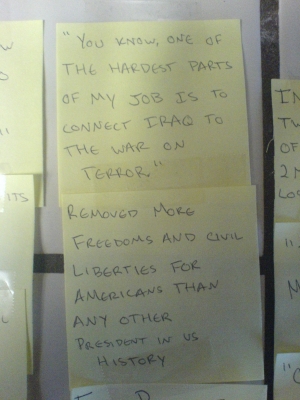 "YOU KNOW, ONE OF
THE HARDEST PARTS
OF MY JOB IS TO
CONNECT IRAQ TO
THE WAR ON
TERROR."
REMOVED MORE
FREEDOMS AND CIVIL
LIBERTIES FOR
AMERICANS THAN
ANY OTHER
PRESIDENT IN US
HISTORY
W
ITS
IN
OF
"